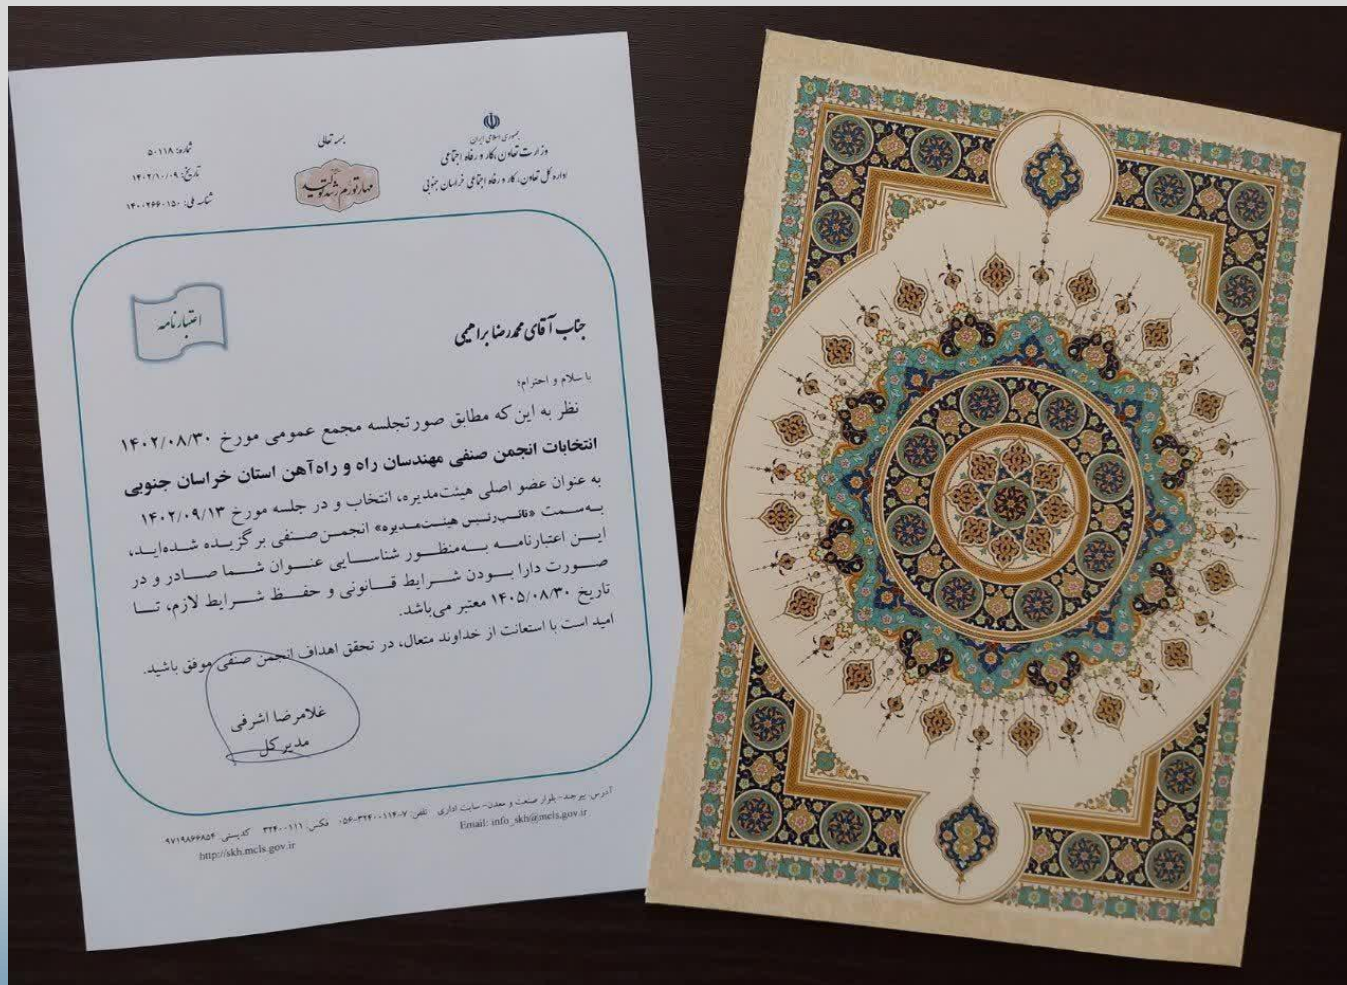 جمهوری اسلامی ایران
وزارت تعاون، کار و رفاه اجتماعی
اداره کل تعاون، کار و رفاه اجتماعی خراسان جنوبی
بسمه تعالی
مهار تورم، رشد تولید
شماره: ۵۰۱۱۸
تاریخ: ۱۴۰۲/۱۰/۰۹
شناسه ملی: ۱۴۰۰۲۶۶۰۱۵۰
اعتبارنامه
جناب آقای محمدرضا براهیمی
با سلام و احترام؛
نظر به این که مطابق صورتجلسه مجمع عمومی مورخ ۱۴۰۲/۰۸/۳۰
انتخابات انجمن صنفی مهندسان راه و راه‌آهن استان خراسان جنوبی
به عنوان عضو اصلی هیئت‌مدیره، انتخاب و در جلسه مورخ ۱۴۰۲/۰۹/۱۳
به‌سمت «نائب‌رئیس هیئت‌مدیره» انجمن‌صنفی برگزیده شده‌اید،
این اعتبارنامه به‌منظور شناسایی عنوان شما صادر و در
صورت دارا بودن شرایط قانونی و حفظ شرایط لازم، تا
تاریخ ۱۴۰۵/۰۸/۳۰ معتبر می‌باشد.
امید است با استعانت از خداوند متعال، در تحقق اهداف انجمن صنفی موفق باشید.
غلامرضا اشرفی
مدیر کل
آدرس: بیرجند- بلوار صنعت و معدن- سایت اداری تلفن: ۷-۰۵۶-۳۲۴۰۰۱۱۴ فکس: ۳۲۴۰۰۱۱۱ کدپستی ۹۷۱۹۸۶۶۸۵۴
Email: info_skh@mcls.gov.ir
http://skh.mcls.gov.ir